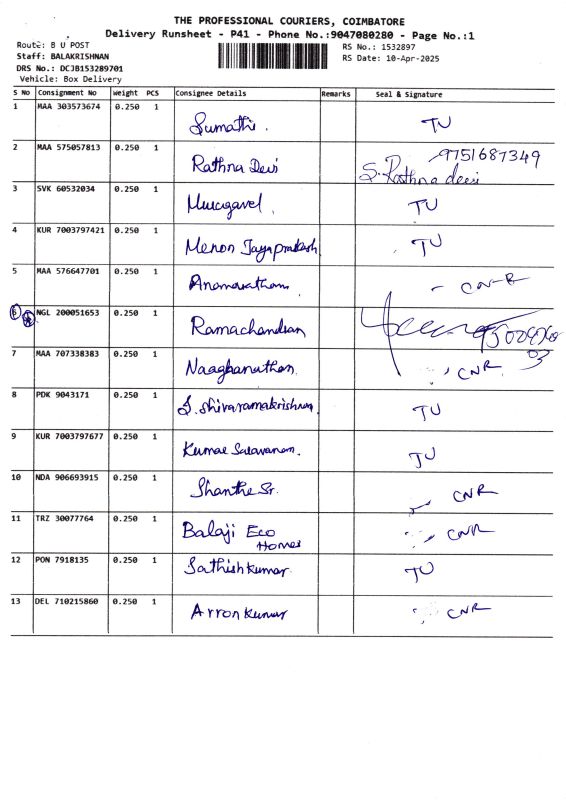 THE PROFESSIONAL COURIERS, COIMBATORE
Delivery Runsheet - P41 - Phone No.:9047080280 - Page No.:1
Route: B U POST
RS No.: 1532897
Staff: BALAKRISHNAN
RS Date: 10-Apr-2025
DRS No.: DCJB153289701
Vehicle: Box Delivery
S No Consignment No Weight PCS Consignee Details Remarks Seal & Signature
1 MAA 303573674 0.250 1 Sumathi. TU
2 MAA 575057813 0.250 1 Rathna Devi 9751687349
S. Rathna deevi
3 SVK 60532034 0.250 1 Murugavel TU
4 KUR 7003797421 0.250 1 Menon Jayaprakash TU
5 MAA 576647701 0.250 1 CNR
6 NGL 200051653 0.250 1 Ramachandran
7 MAA 707338383 0.250 1 Naaghanathan. CNR
8 PDK 9043171 0.250 1 S. Shivaramakrishnan TU
9 KUR 7003797677 0.250 1 Kumar Saravanan. TU
10 NDA 906693915 0.250 1 Shanthe Sr. CNR
11 TRZ 30077764 0.250 1 Balaji Eco CNR
Homes
12 PON 7918135 0.250 1 Sathishkumar TU
13 DEL 710215860 0.250 1 Arron Kumar CNR